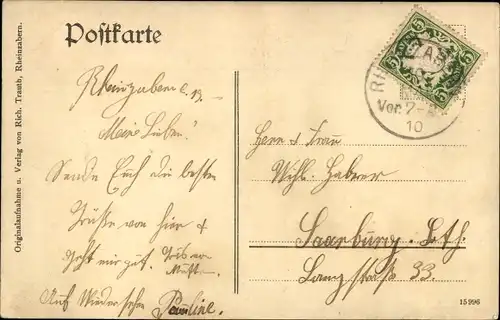 Postkarte
Originalaufnahme u. Verlag von Rich. Trauth, Rheinzabern.
Rheinzabern
Meine Lieben!
Sende Euch die besten
Grüße von hier &
geht mir gut.
Auf Wiedersehen Pauline.
5 5
5 5
Vor. 7-
10
Herrn & Frau
Wilh. Haberer
Saarburg Lth.
Langstraße 33
15996